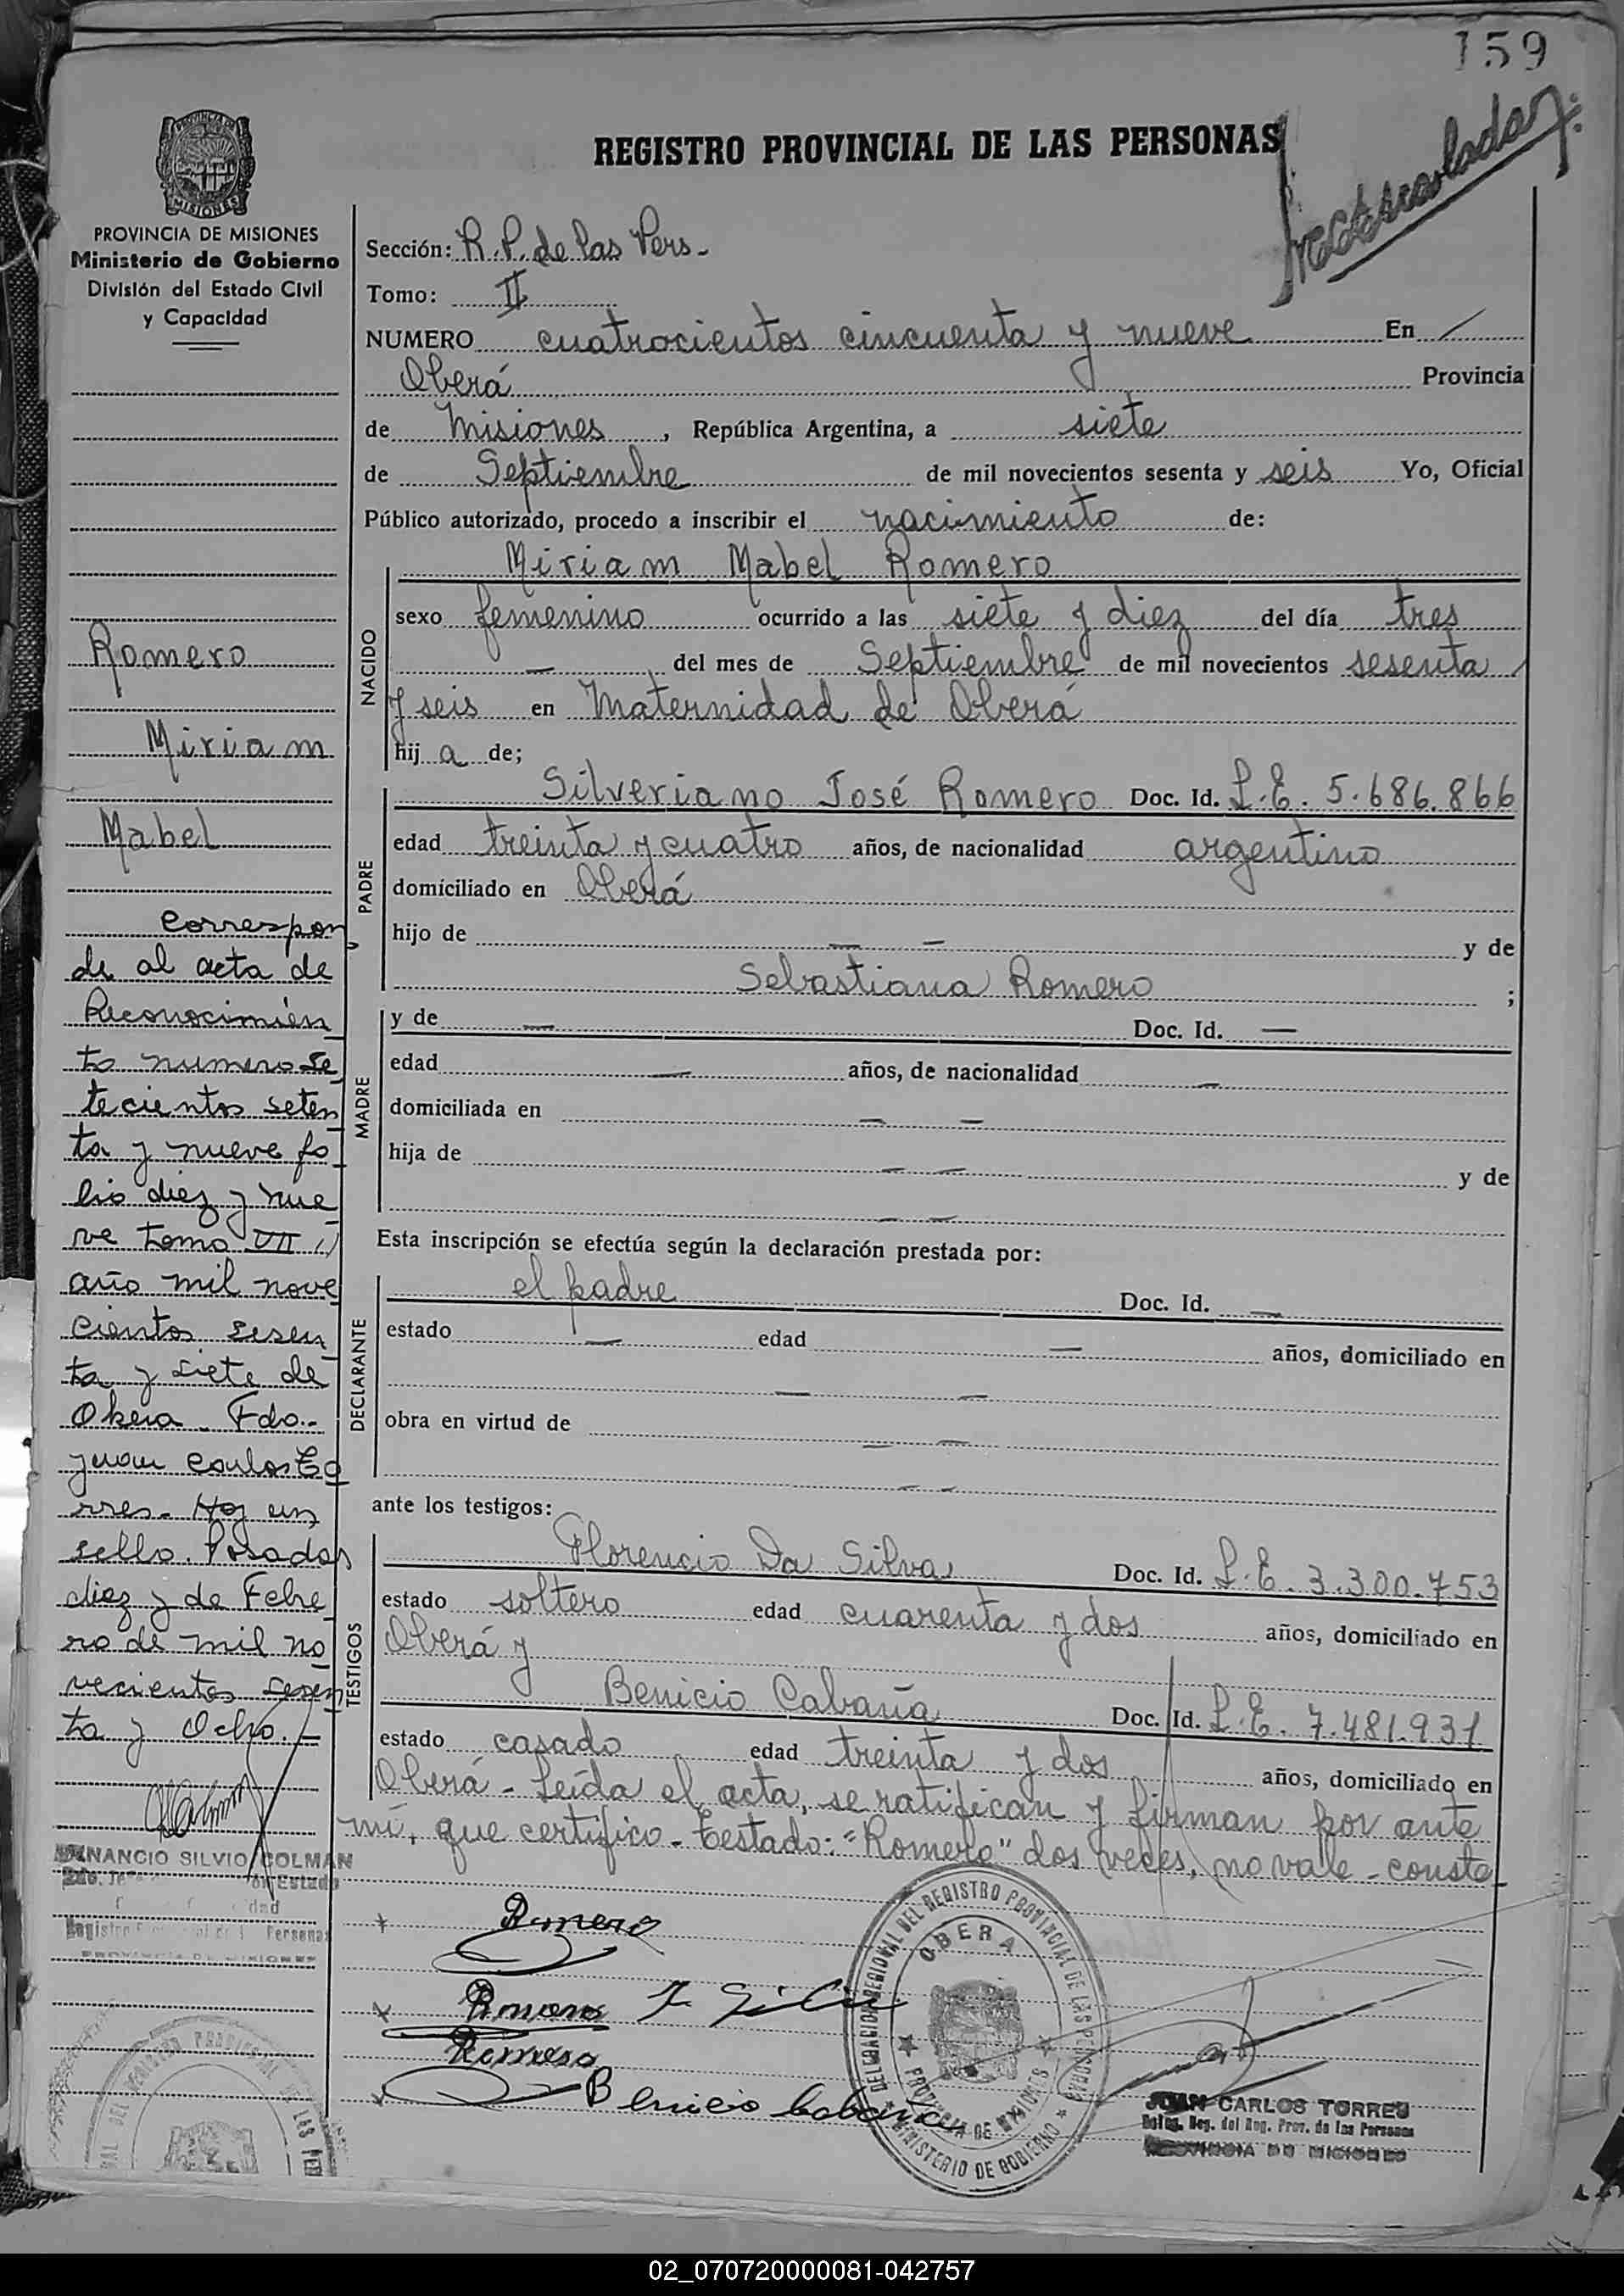 159
REGISTRO PROVINCIAL DE LAS PERSONAS
PROVINCIA DE MISIONES
Ministerio de Gobierno
División del Estado Civil
y Capacidad
Romero
Miriam
Mabel
Correspon
de al acta de
Reconocimien
to numero se
tecientos seten
ta y nueve fo
lio diez y nue
ve tomo VII
año mil nove
cientos sesen
ta y siete de
Obera - Fdo.-
Juan Carlos To
rres - Hay un
sello. Posadas
diez y de Febre
ro de mil no
vecientos sesen
ta y Ocho.-
VENANCIO SILVIO COLMAN
Sección: R.P. de las Pers-
Tomo: II
NUMERO cuatrocientos cincuenta y nueve En
Oberá Provincia
de Misiones, República Argentina, a siete
de Septiembre de mil novecientos sesenta y seis Yo, Oficial
Público autorizado, procedo a inscribir el nacimiento de:
NACIDO
Miriam Mabel Romero
sexo femenino ocurrido a las siete y diez del día tres
— del mes de Septiembre de mil novecientos sesenta
y seis en Maternidad de Oberá
hij a de;
PADRE
Silveriano José Romero Doc. Id. L.E. 5.686.866
edad treinta y cuatro años, de nacionalidad argentino
domiciliado en Oberá
hijo de — — y de
Sebastiana Romero ;
MADRE
y de — Doc. Id. —
edad — años, de nacionalidad —
domiciliada en — —
hija de — — y de
— —
Esta inscripción se efectúa según la declaración prestada por:
DECLARANTE
el padre Doc. Id. —
estado — edad — años, domiciliado en
— —
obra en virtud de — —
— —
ante los testigos:
TESTIGOS
Florencio Da Silva Doc. Id. L.E. 3.300.753
estado soltero edad cuarenta y dos años, domiciliado en
Oberá y
Benicio Cabaña Doc. Id. L.E. 7.481.931
estado casado edad treinta y dos años, domiciliado en
Oberá - Leída el acta, se ratifican y firman por ante
mí, que certifico - Testado: "Romero" dos veces, no vale - conste
Romero
Romero F Silva
Romero
Benicio Cabaña
DELEGACION REGIONAL DEL REGISTRO PROVINCIAL DE LAS PERSONAS
OBERA
PROVINCIA DE MISIONES
MINISTERIO DE GOBIERNO
JUAN CARLOS TORRES
Deleg. Reg. del Reg. Prov. de las Personas
PROVINCIA DE MISIONES
02_070720000081-042757